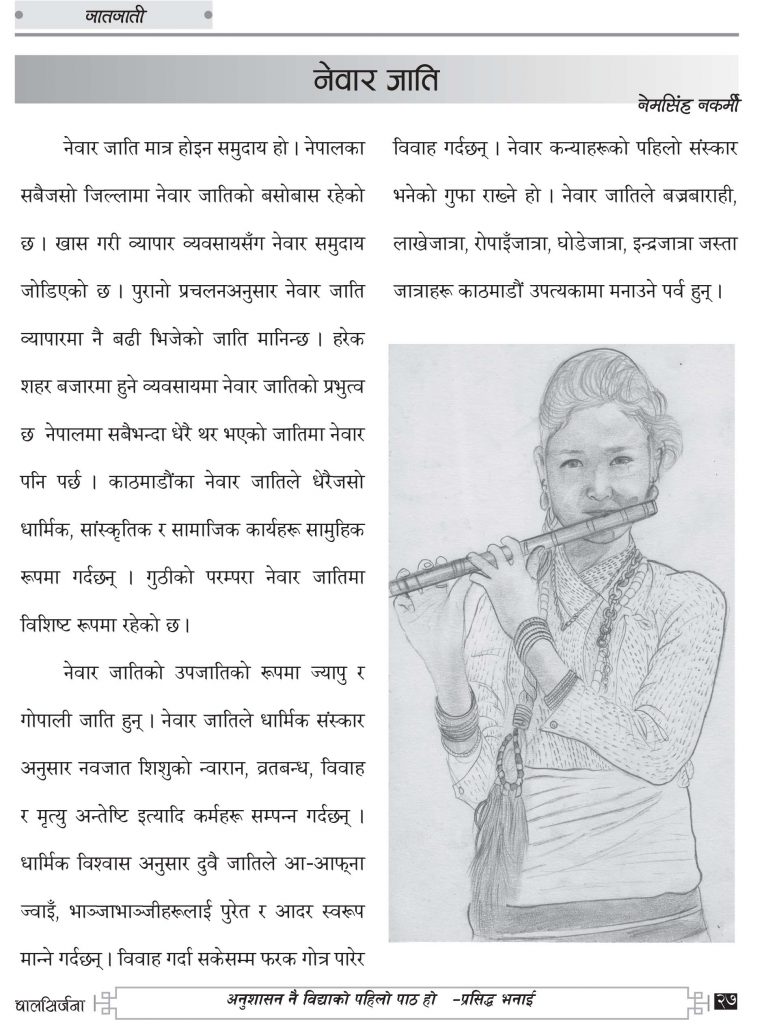 जातजाती
नेवार जाति
नेमसिंह नकर्मी
नेवार जाति मात्र होइन समुदाय हो । नेपालका
सबैजसो जिल्लामा नेवार जातिको बसोबास रहेको
छ । खास गरी व्यापार व्यवसायसँग नेवार समुदाय
जोडिएको छ । पुरानो प्रचलनअनुसार नेवार जाति
व्यापारमा नै बढी भिजेको जाति मानिन्छ । हरेक
शहर बजारमा हुने व्यवसायमा नेवार जातिको प्रभुत्व
छ नेपालमा सबैभन्दा धेरै थर भएको जातिमा नेवार
पनि पर्छ । काठमाडौंका नेवार जातिले धेरैजसो
धार्मिक, सांस्कृतिक र सामाजिक कार्यहरू सामुहिक
रूपमा गर्दछन् । गुठीको परम्परा नेवार जातिमा
विशिष्ट रूपमा रहेको छ ।
नेवार जातिको उपजातिको रूपमा ज्यापु र
गोपाली जाति हुन् । नेवार जातिले धार्मिक संस्कार
अनुसार नवजात शिशुको न्वारान, व्रतबन्ध, विवाह
र मृत्यु अन्तेष्टि इत्यादि कर्महरू सम्पन्न गर्दछन् ।
धार्मिक विश्वास अनुसार दुवै जातिले आ-आफ्ना
ज्वाइँ, भाञ्जाभाञ्जीहरूलाई पुरेत र आदर स्वरूप
मान्ने गर्दछन् । विवाह गर्दा सकेसम्म फरक गोत्र पारेर
विवाह गर्दछन् । नेवार कन्याहरूको पहिलो संस्कार
भनेको गुफा राख्ने हो । नेवार जातिले बज्रबाराही,
लाखेजात्रा, रोपाइँजात्रा, घोडेजात्रा, इन्द्रजात्रा जस्ता
जात्राहरू काठमाडौं उपत्यकामा मनाउने पर्व हुन् ।
बालसिर्जना
अनुशासन नै विद्याको पहिलो पाठ हो -प्रसिद्ध भनाई
२७